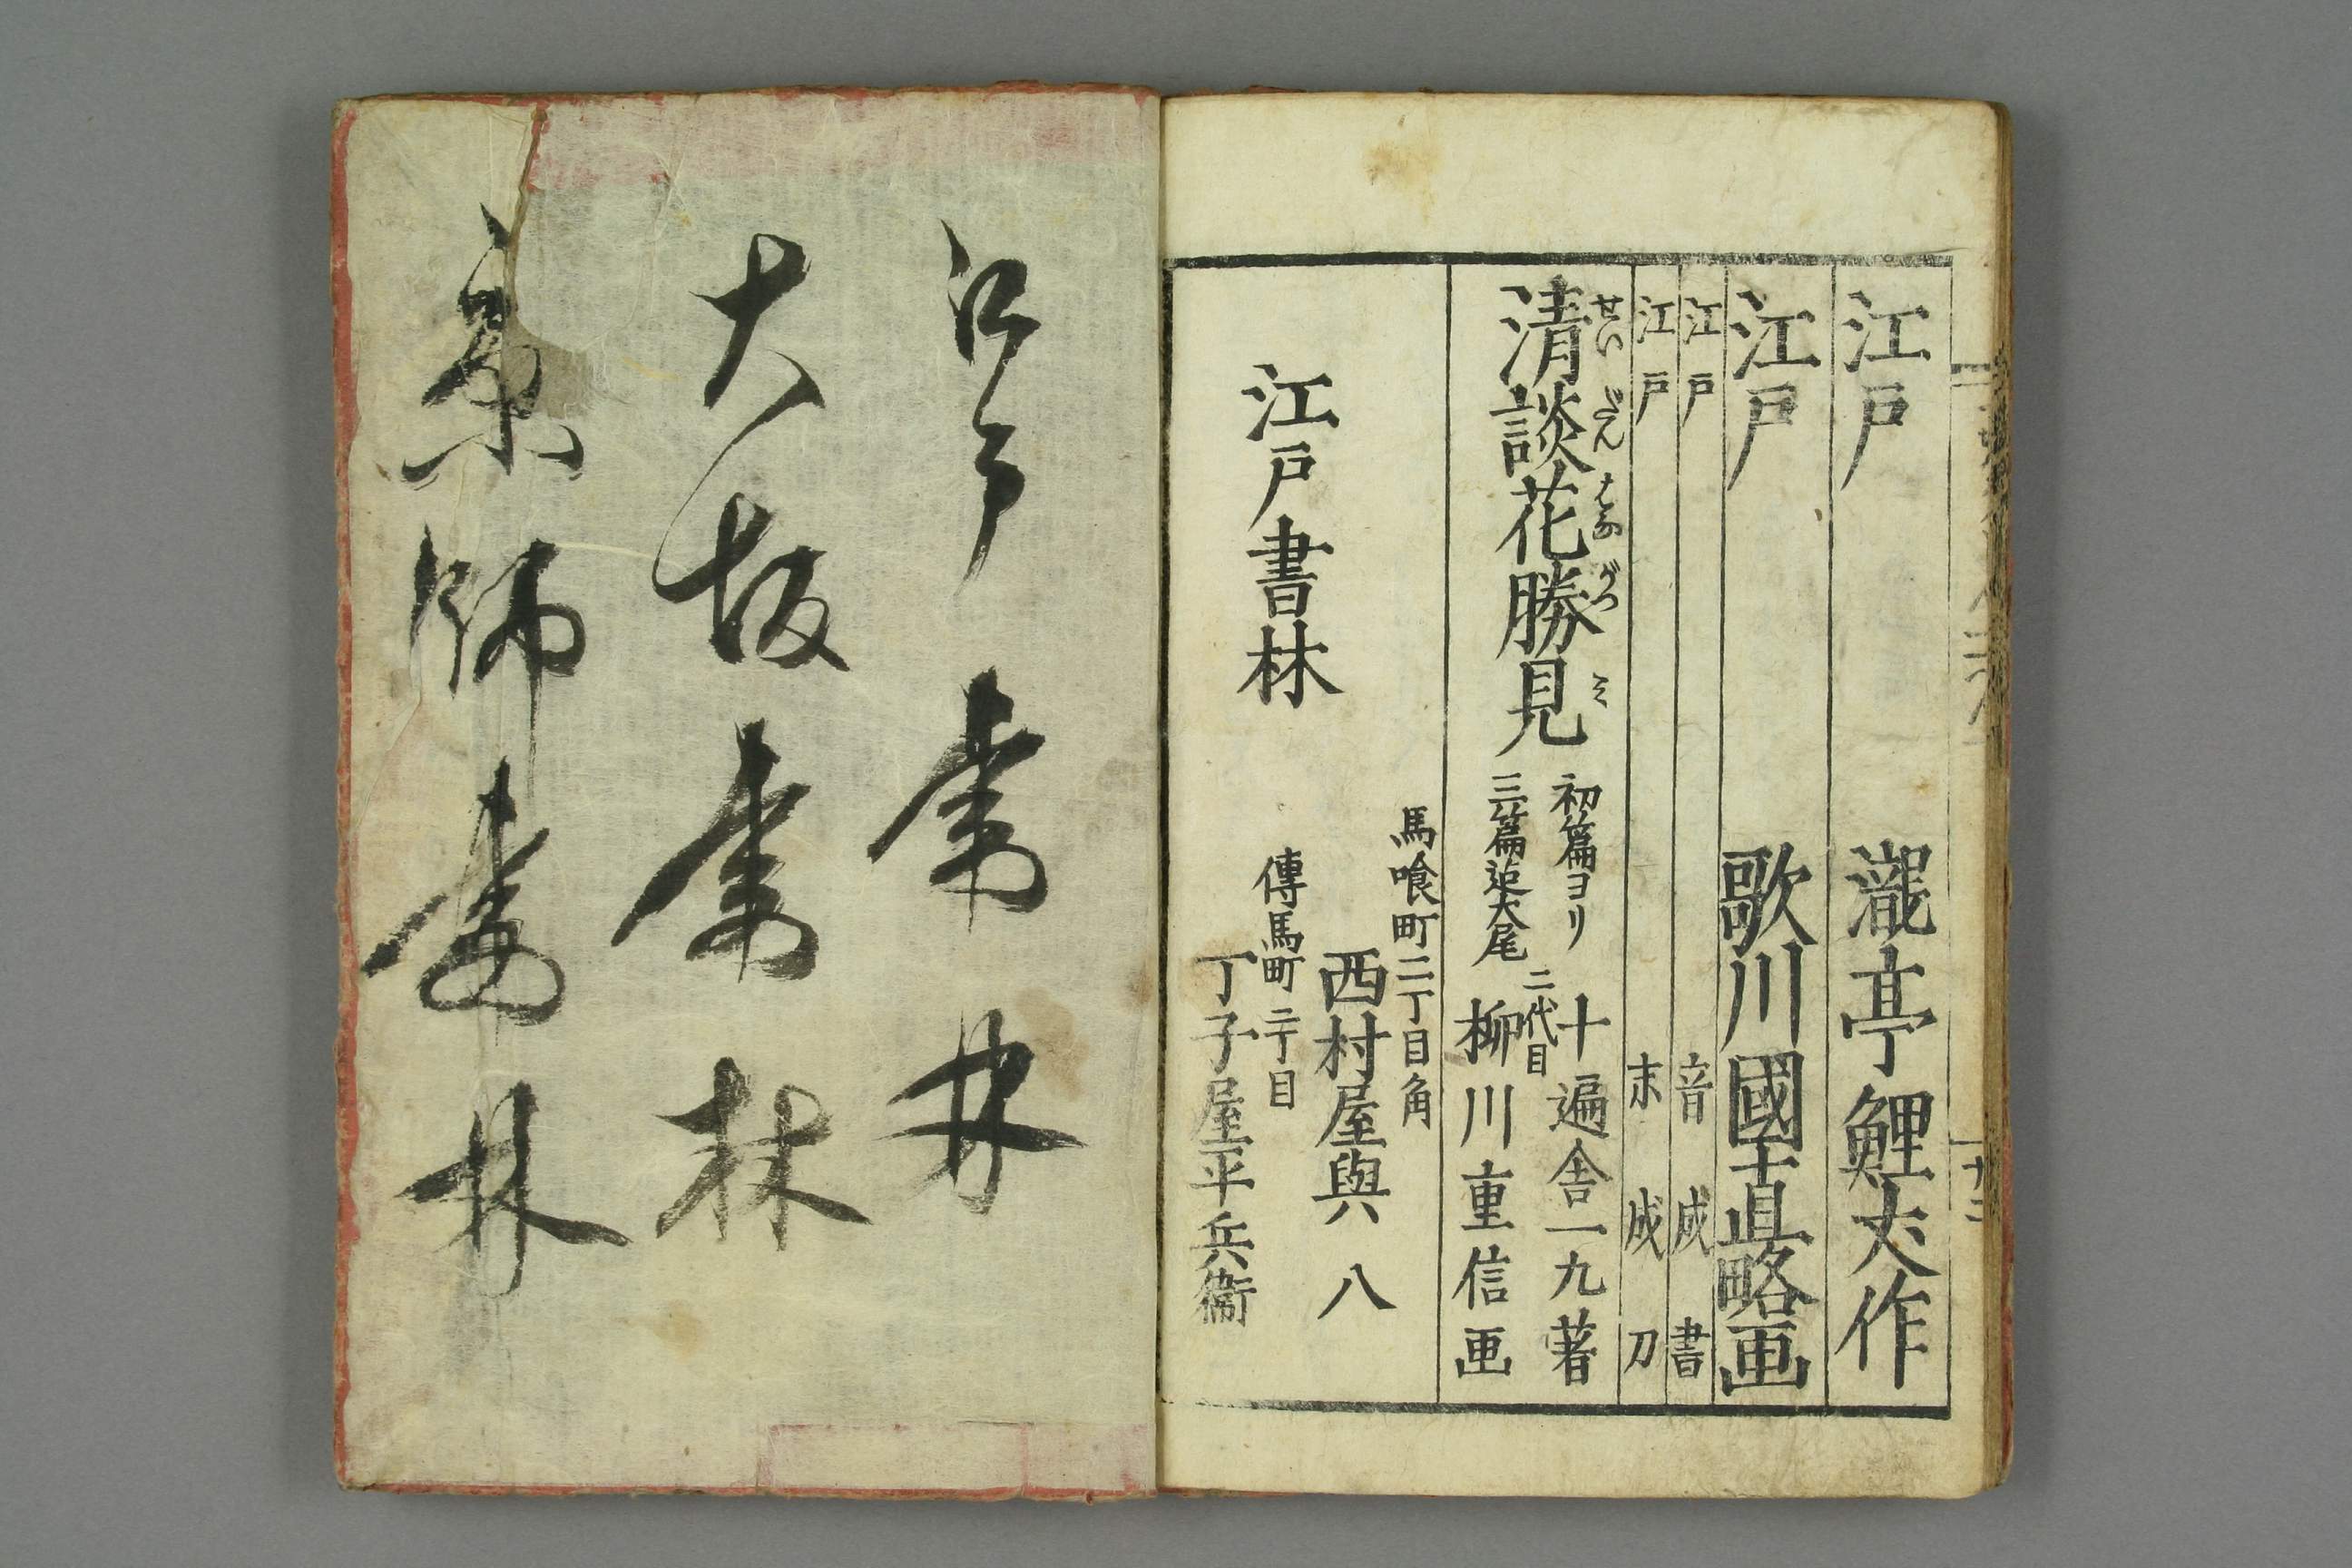 江戸 瀧亭鯉丈作
江戸 歌川國直略画
江戸 音成書
江戸 末成刀
清談花勝見
せいだんはながつミ
初篇ヨリ
三篇迄大尾
二代目
十遍舎一九著
柳川重信画
江戸書林
馬喰町二丁目角
西村屋與八
傳馬町二丁目
丁子屋平兵衛
江戸書林
大坂書林
京師書林